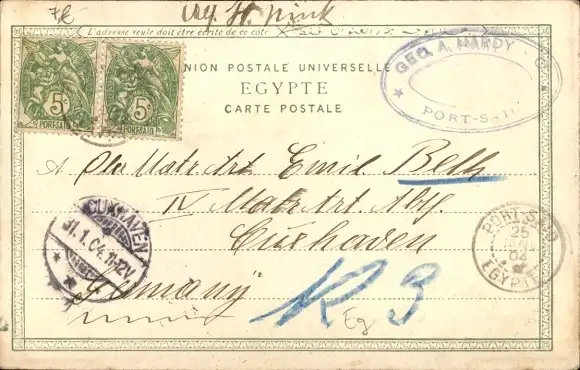 L'adresse seule doit être écrite de ce côté
UNION POSTALE UNIVERSELLE
EGYPTE
CARTE POSTALE
5c 5c
PORT-SAID PORT-SAID
GEO. A. HARDY
PORT-SAID
A Matr Art Emil Belk
IV Matr Art. Abt.
Cuxhaven
Germany
CUXHAVEN
31.1.04. 11-12V
PORT-SAID
25
04
EGYPTE
R 3
Eg